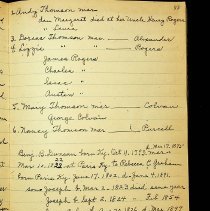 93
2. Andy Thomson mar
son Margaret died at her Uncle Henry Rogers
" Lewis
3. Dorcas Thomson mar. — Alexander
4 Lizzie " " — Rogers
James Rogers
Charles "
Isaac "
Austin "
5. Mary Thomson mar — Colvan
George Colvan
6. Nancy Thomson mar 1 Purcell
d. Mar 17, 1872
Benj. B. Duncan born Ky. Oct 11, 1793 mar.
Mar. 10, 1822 Paris Ky. to Rebecca E. Graham
born Paris Ky. June 17, 1802 d. June 4, 1891.
sons Joseph b. Mar 2, 1823 died same year
Joseph b. Sept 2, 1824 Feb 1854
1826 d. Mar 1847